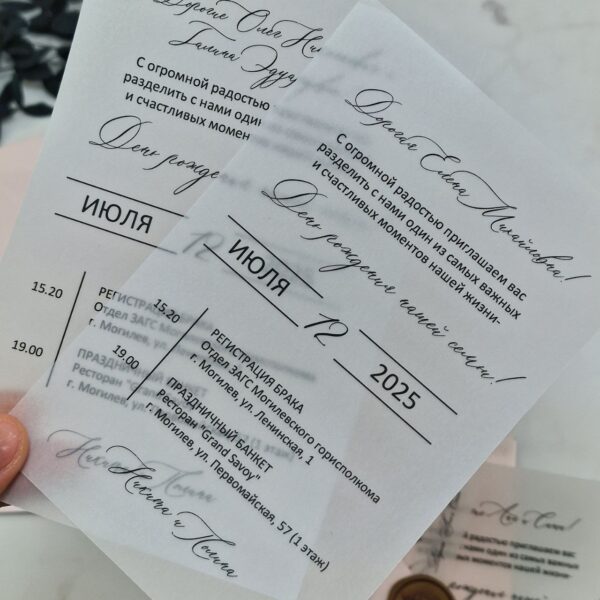 Дорогие Олег
Галина
С огромной радостью
разделить с нами один
и счастливых момен
День рождения
ИЮЛЯ
12
15.20
РЕГИСТРАЦИЯ
Отдел ЗАГС Могилев
г. Могилев, ул.
19.00
ПРАЗДНИЧНЫЙ БАНКЕТ
Ресторан "Grand
г. Могилев, ул.
Никита Полина
Дорогая Елена Михайловна!
С огромной радостью приглашаем вас
разделить с нами один из самых важных
и счастливых моментов нашей жизни-
День рождения нашей семьи!
ИЮЛЯ
12
2025
15.20
РЕГИСТРАЦИЯ БРАКА
Отдел ЗАГС Могилевского горисполкома
г. Могилев, ул. Ленинская, 1
19.00
ПРАЗДНИЧНЫЙ БАНКЕТ
Ресторан "Grand Savoy"
г. Могилев, ул. Первомайская, 57 (1 этаж)
Никита и Полина
радостью приглашаем вас
нами один из самых важных
моментов нашей жизни-